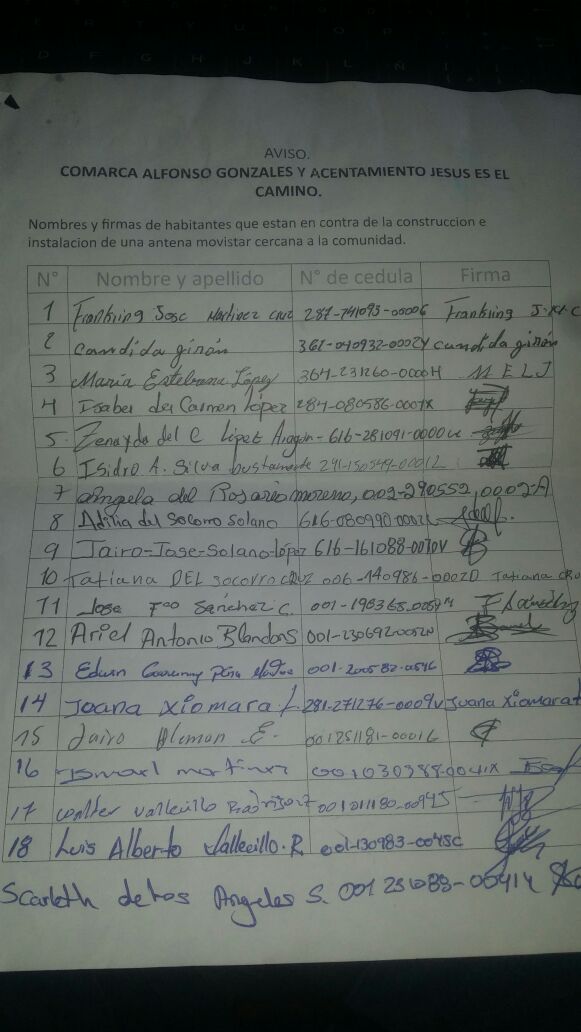 AVISO.
COMARCA ALFONSO GONZALES Y ACENTAMIENTO JESUS ES EL
CAMINO.
Nombres y firmas de habitantes que estan en contra de la construccion e
instalacion de una antena movistar cercana a la comunidad.
N° Nombre y apellido N° de cedula Firma
1 Frankling Jose Martinez cruz 287-741093-00006 Frankling J.
2 Candida girón candida girón
3 Maria Estebana López 364-231260-0000H M E L J
4 Isabel del Carmen López 284-080586-0001X
5 Zenayda del C López Aragon - 616-281091-0000
6 Isidro A. Silva bustamante
7 angela del Rosario moreno, 002-290552,0002-A
8 del Socorro Solano 616-080990-
9 Jairo-Jose-Solano-lópez 616-161088-0070V
10 Tatiana DEL socorro CRUZ 006-140986-0002D Tatiana CRU
11 Jose Fco Sánchez C.
12 Ariel Antonio Blandons 001-230692-
13 Edwin 001-200582-
14 Joana Xiomara L. 281-271276-0009V Joana Xiomara
15 Jairo Aleman E.
16 Ismael martinez 001030388-0041X
17 walter vallecillo
18 Luis Alberto Vallecillo. R. 001-130983-0045C
Scarleth de los Angeles S.